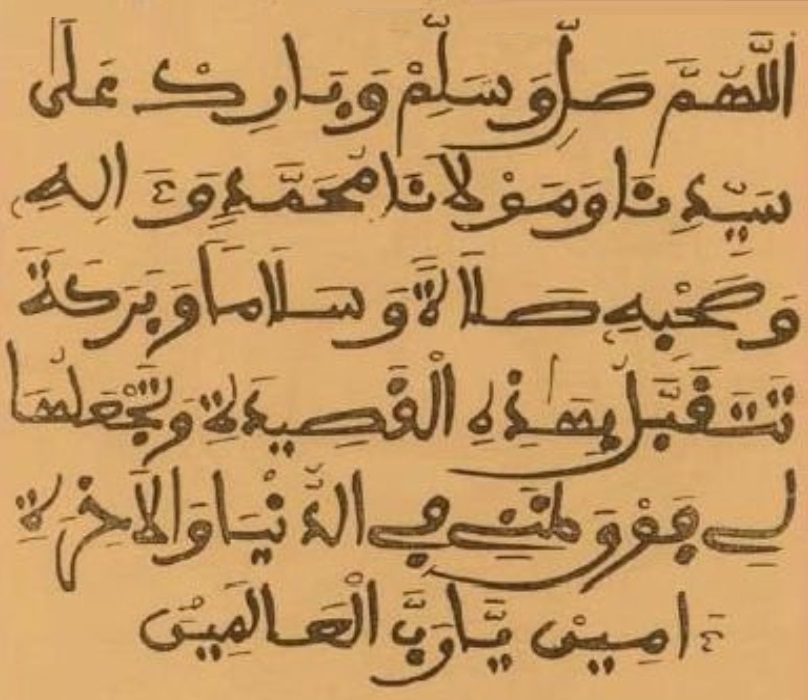 اللَّهُمَّ صَلِّ وَسَلِّمْ وَبَارِكْ عَلَى
سَيِّدِنَا وَمَوْلَانَا مُحَمَّدٍ وَءَالِهِ
وَصَحْبِهِ صَلَاةً وَسَلَامًا وَبَرَكَةً
تَتَقَبَّلُ بِهَـٰذِهِ الْقَصِيدَةِ وَتَجْعَلُهَا
لِي فَوْقَ فِي الدُّنْيَا وَالْآخِرَةِ
ءَامِينْ يَارَبَّ الْعَالَمِينْ